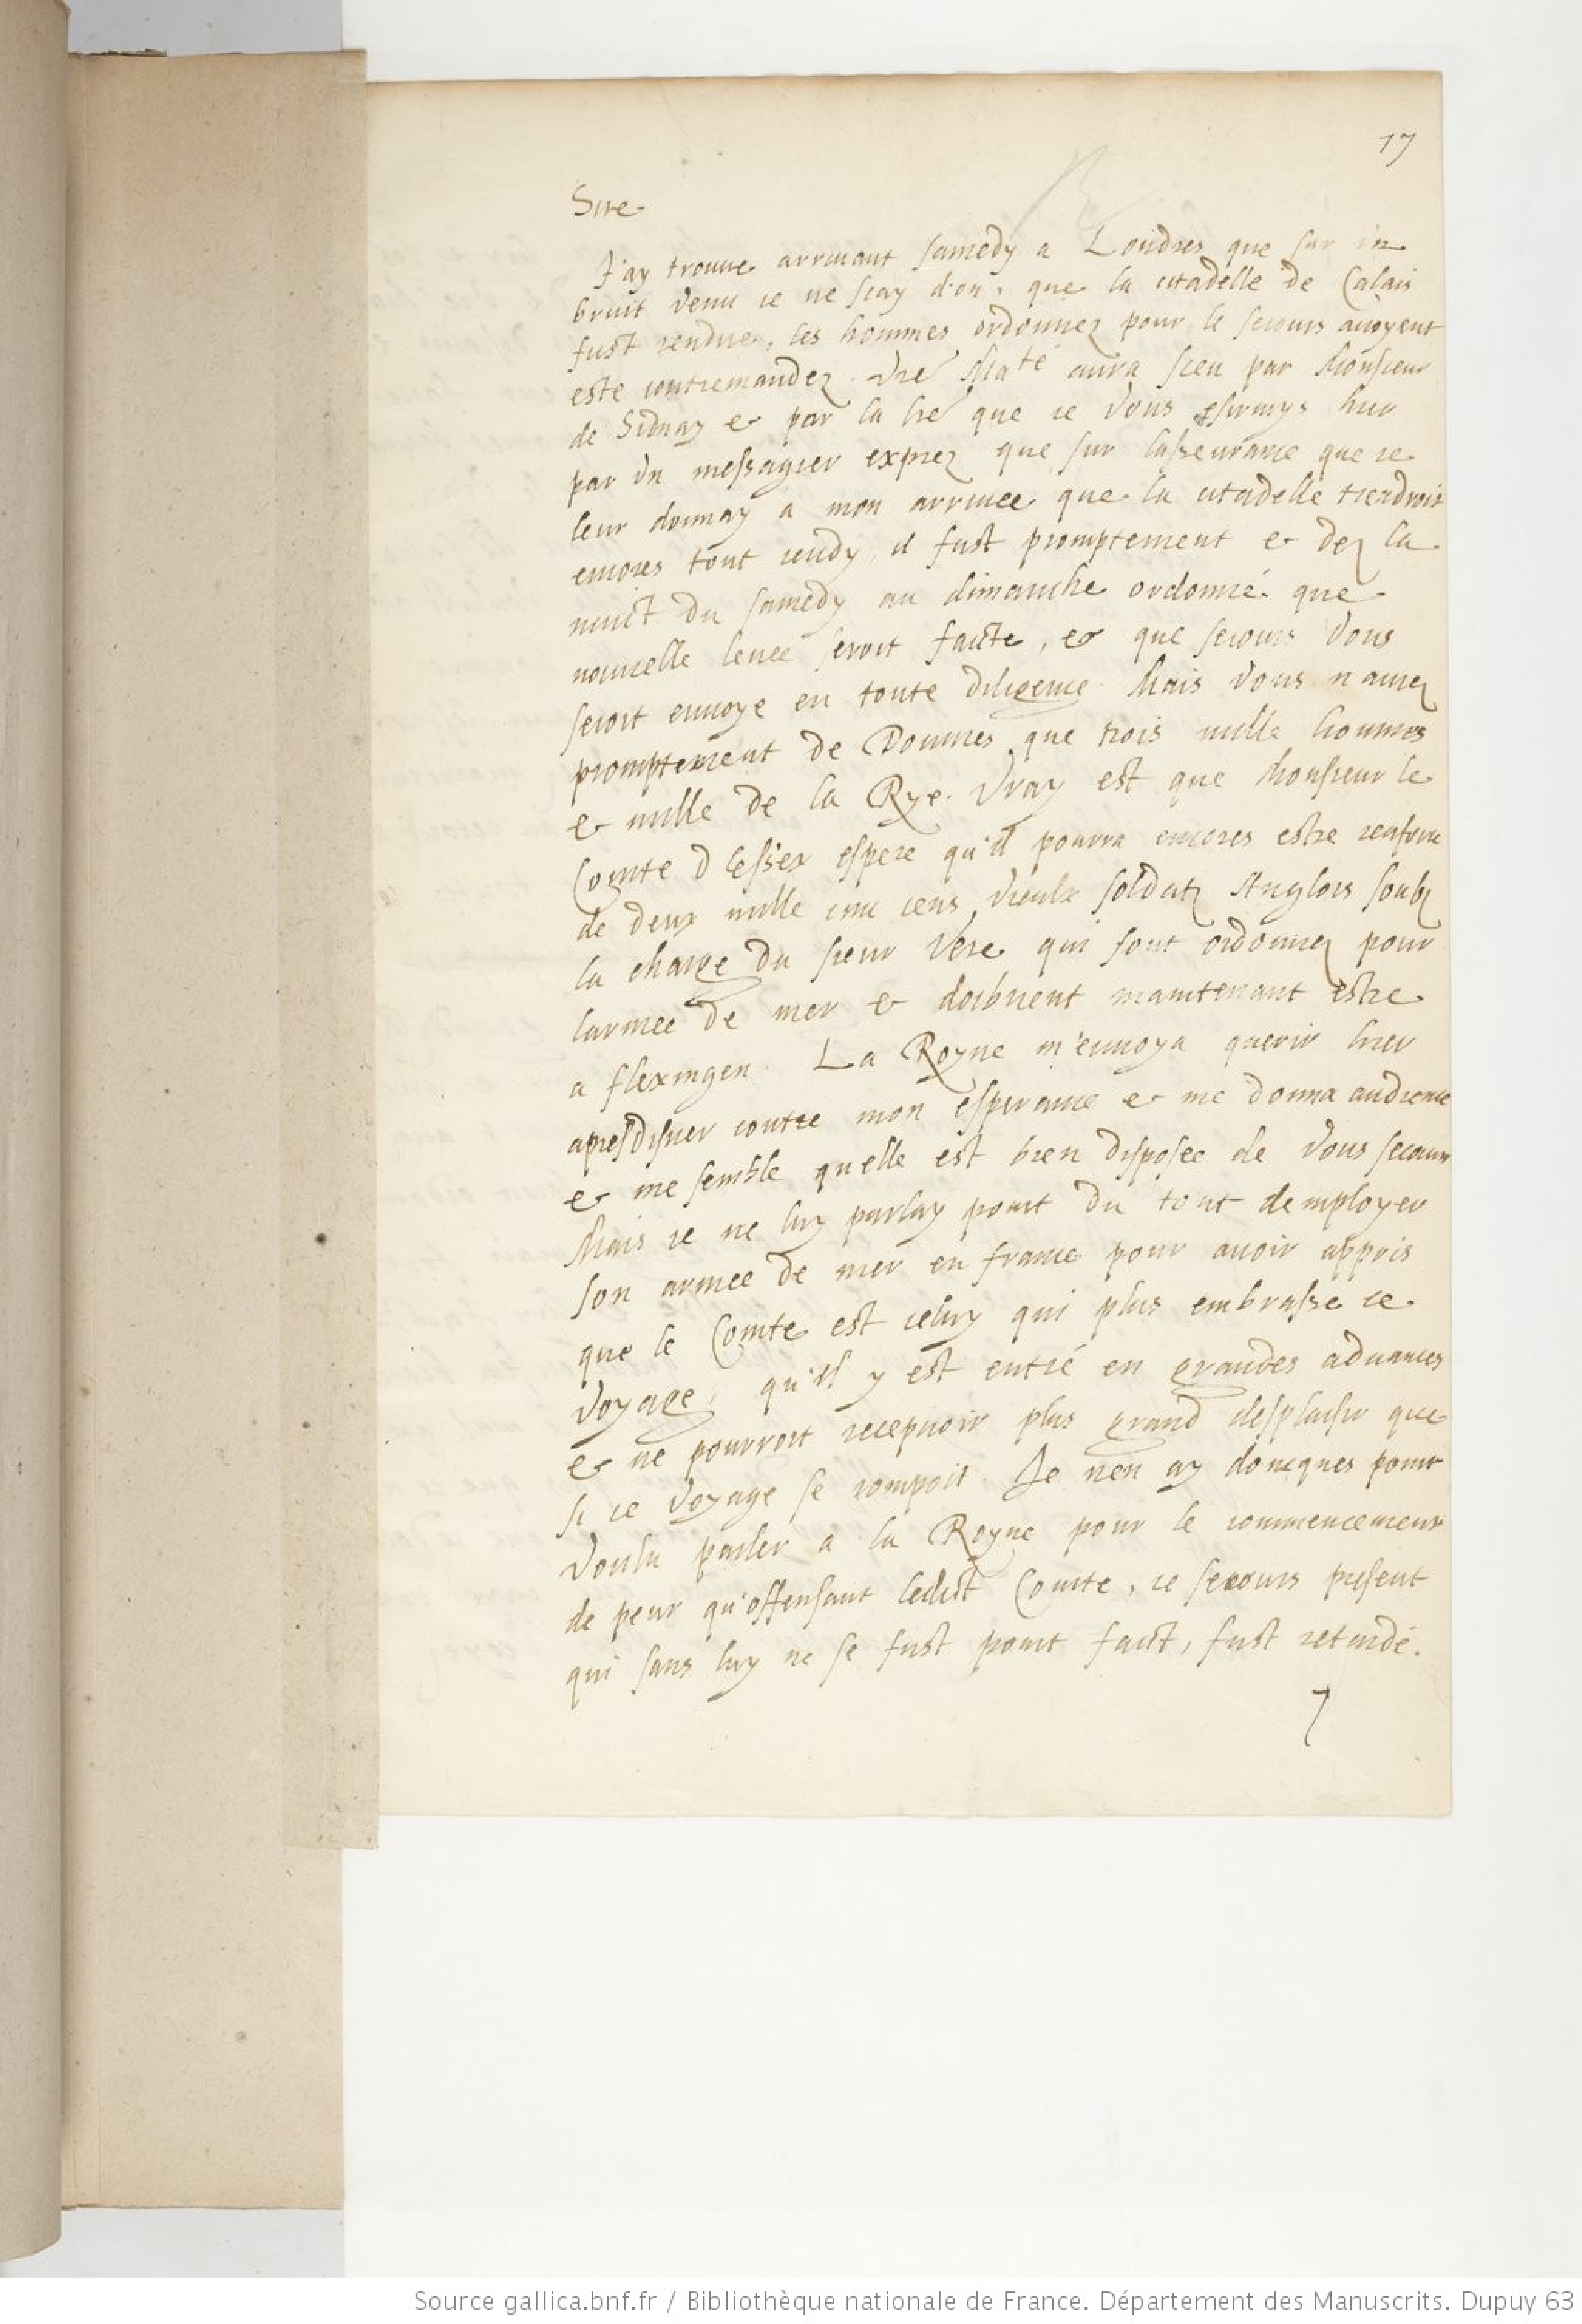 17
Sire
J'ay trouué arriuant samedy a Londres que sur vn
bruit venu ie ne scay d'ou, que la citadelle de Calais
fust rendue, les hommes ordonnez pour le secours auoyent
esté contremandez. Vre Maté aura sceu par Monsieur
de Sidnay & par la lre que ie vous escriuys hier
par vn messagier exprez que sur lasseurance que ie
leur donnay a mon arriuee que la citadelle tiendroit
encores tout ieudy, il fust promptement & dez la
nuict du samedy au dimanche ordonné que
nouuelle leuee seroit faicte, & que secours vous
seroit enuoyé en toute diligence. Mais vous n'aurez
promptement de Douures que trois mille hommes
& mille de la Rye. Vray est que Monsieur le
Comte d'Essex espere qu'il pourra encores estre renforcé
de deux mille cinc cens vieulx soldatz Anglois soubz
la charge du sieur Vere qui sont ordonnez pour
larmee de mer & doibuent maintenant estre
a flexingen. La Royne m'enuoya querir hier
apresdisner contre mon esperance & me donna audience
& me semble quelle est bien disposee de vous secourir
Mais ie ne luy parlay point du tout demployer
son armee de mer en france pour auoir appris
que le Comte est celuy qui plus embrasse ce
voyage, qu'il y est entré en grandes aduances
& ne pourroit recepuoir plus grand desplaisir que
si ce voyage se rompoit. Je n'en ay doncques point
voulu parler a la Royne pour le commencement
de peur qu'offensant ledict Comte, ce secours present
qui sans luy ne se fust point faict, fust retardé.
Source gallica.bnf.fr / Bibliothèque nationale de France. Département des Manuscrits. Dupuy 63